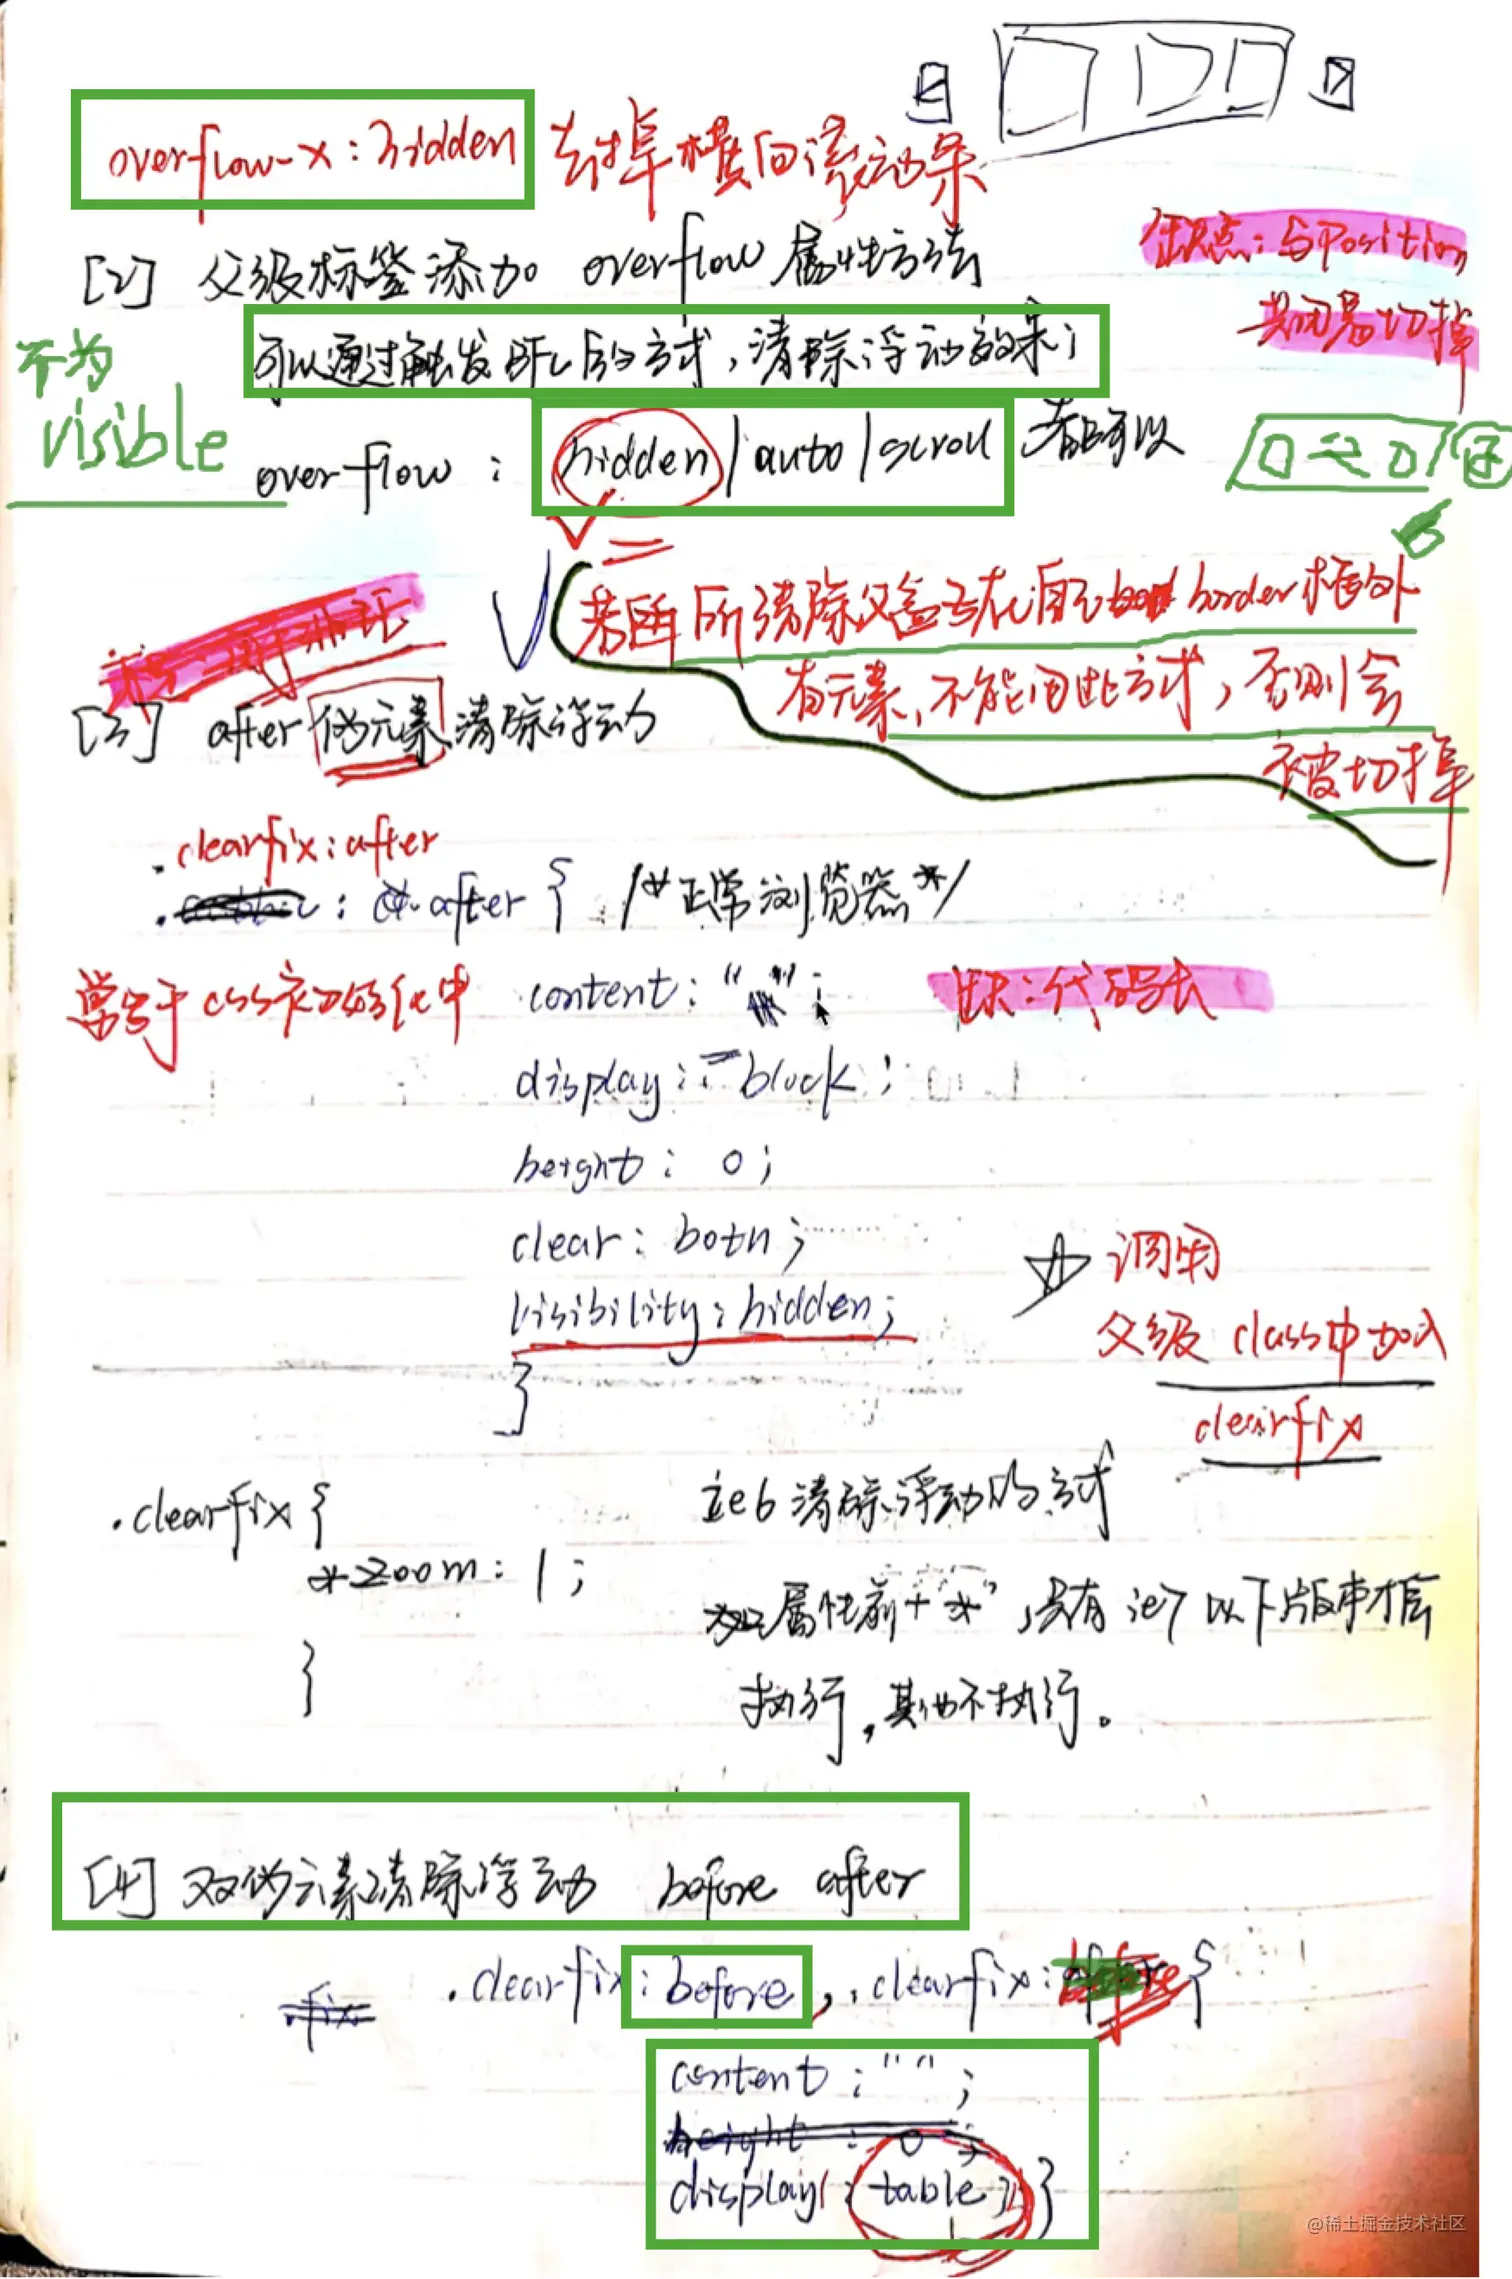 overflow-x:hidden 去掉横向滚动条
缺点:与position
[2] 父级标签添加 overflow 属性方法
共用易切掉
可以通过触发BFC的方式,清除浮动效果;
不为
visible
overflow : hidden/auto/scroll 都可以
若 所清除父盒子在自己 border 框外
有元素,不能用此方式,否则会
被切掉
[3] after伪元素清除浮动
.clearfix:after
after { /*正常浏览器*/
常写于css初始化中
content: "";
缺:代码长
display: block;
height: 0;
clear: both;
visibility:hidden;
}
调用
父级 class中加入
clearfix
.clearfix {
*zoom: 1;
}
ie6 清除浮动的方式
属性前+"*",只有 ie7 以下版本才会
执行,其他不执行。
[4] 双伪元素清除浮动 before after
.clearfix:before,.clearfix: {
content : "";
height : 0;
display : table; }
@稀土掘金技术社区